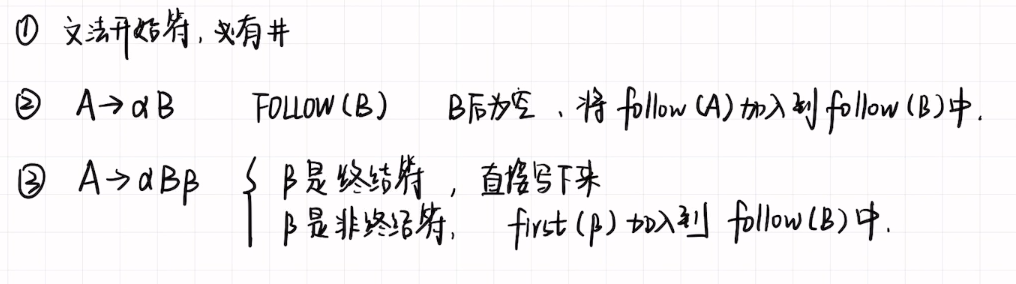 ① 文法开始符,必有井
② A→αB FOLLOW(B) B后为空、将 follow(A)加入到 follow(B)中.
③ A→αBβ { β是终结符,直接写下来
β是非终结符, first(β)加入到 follow(B)中.